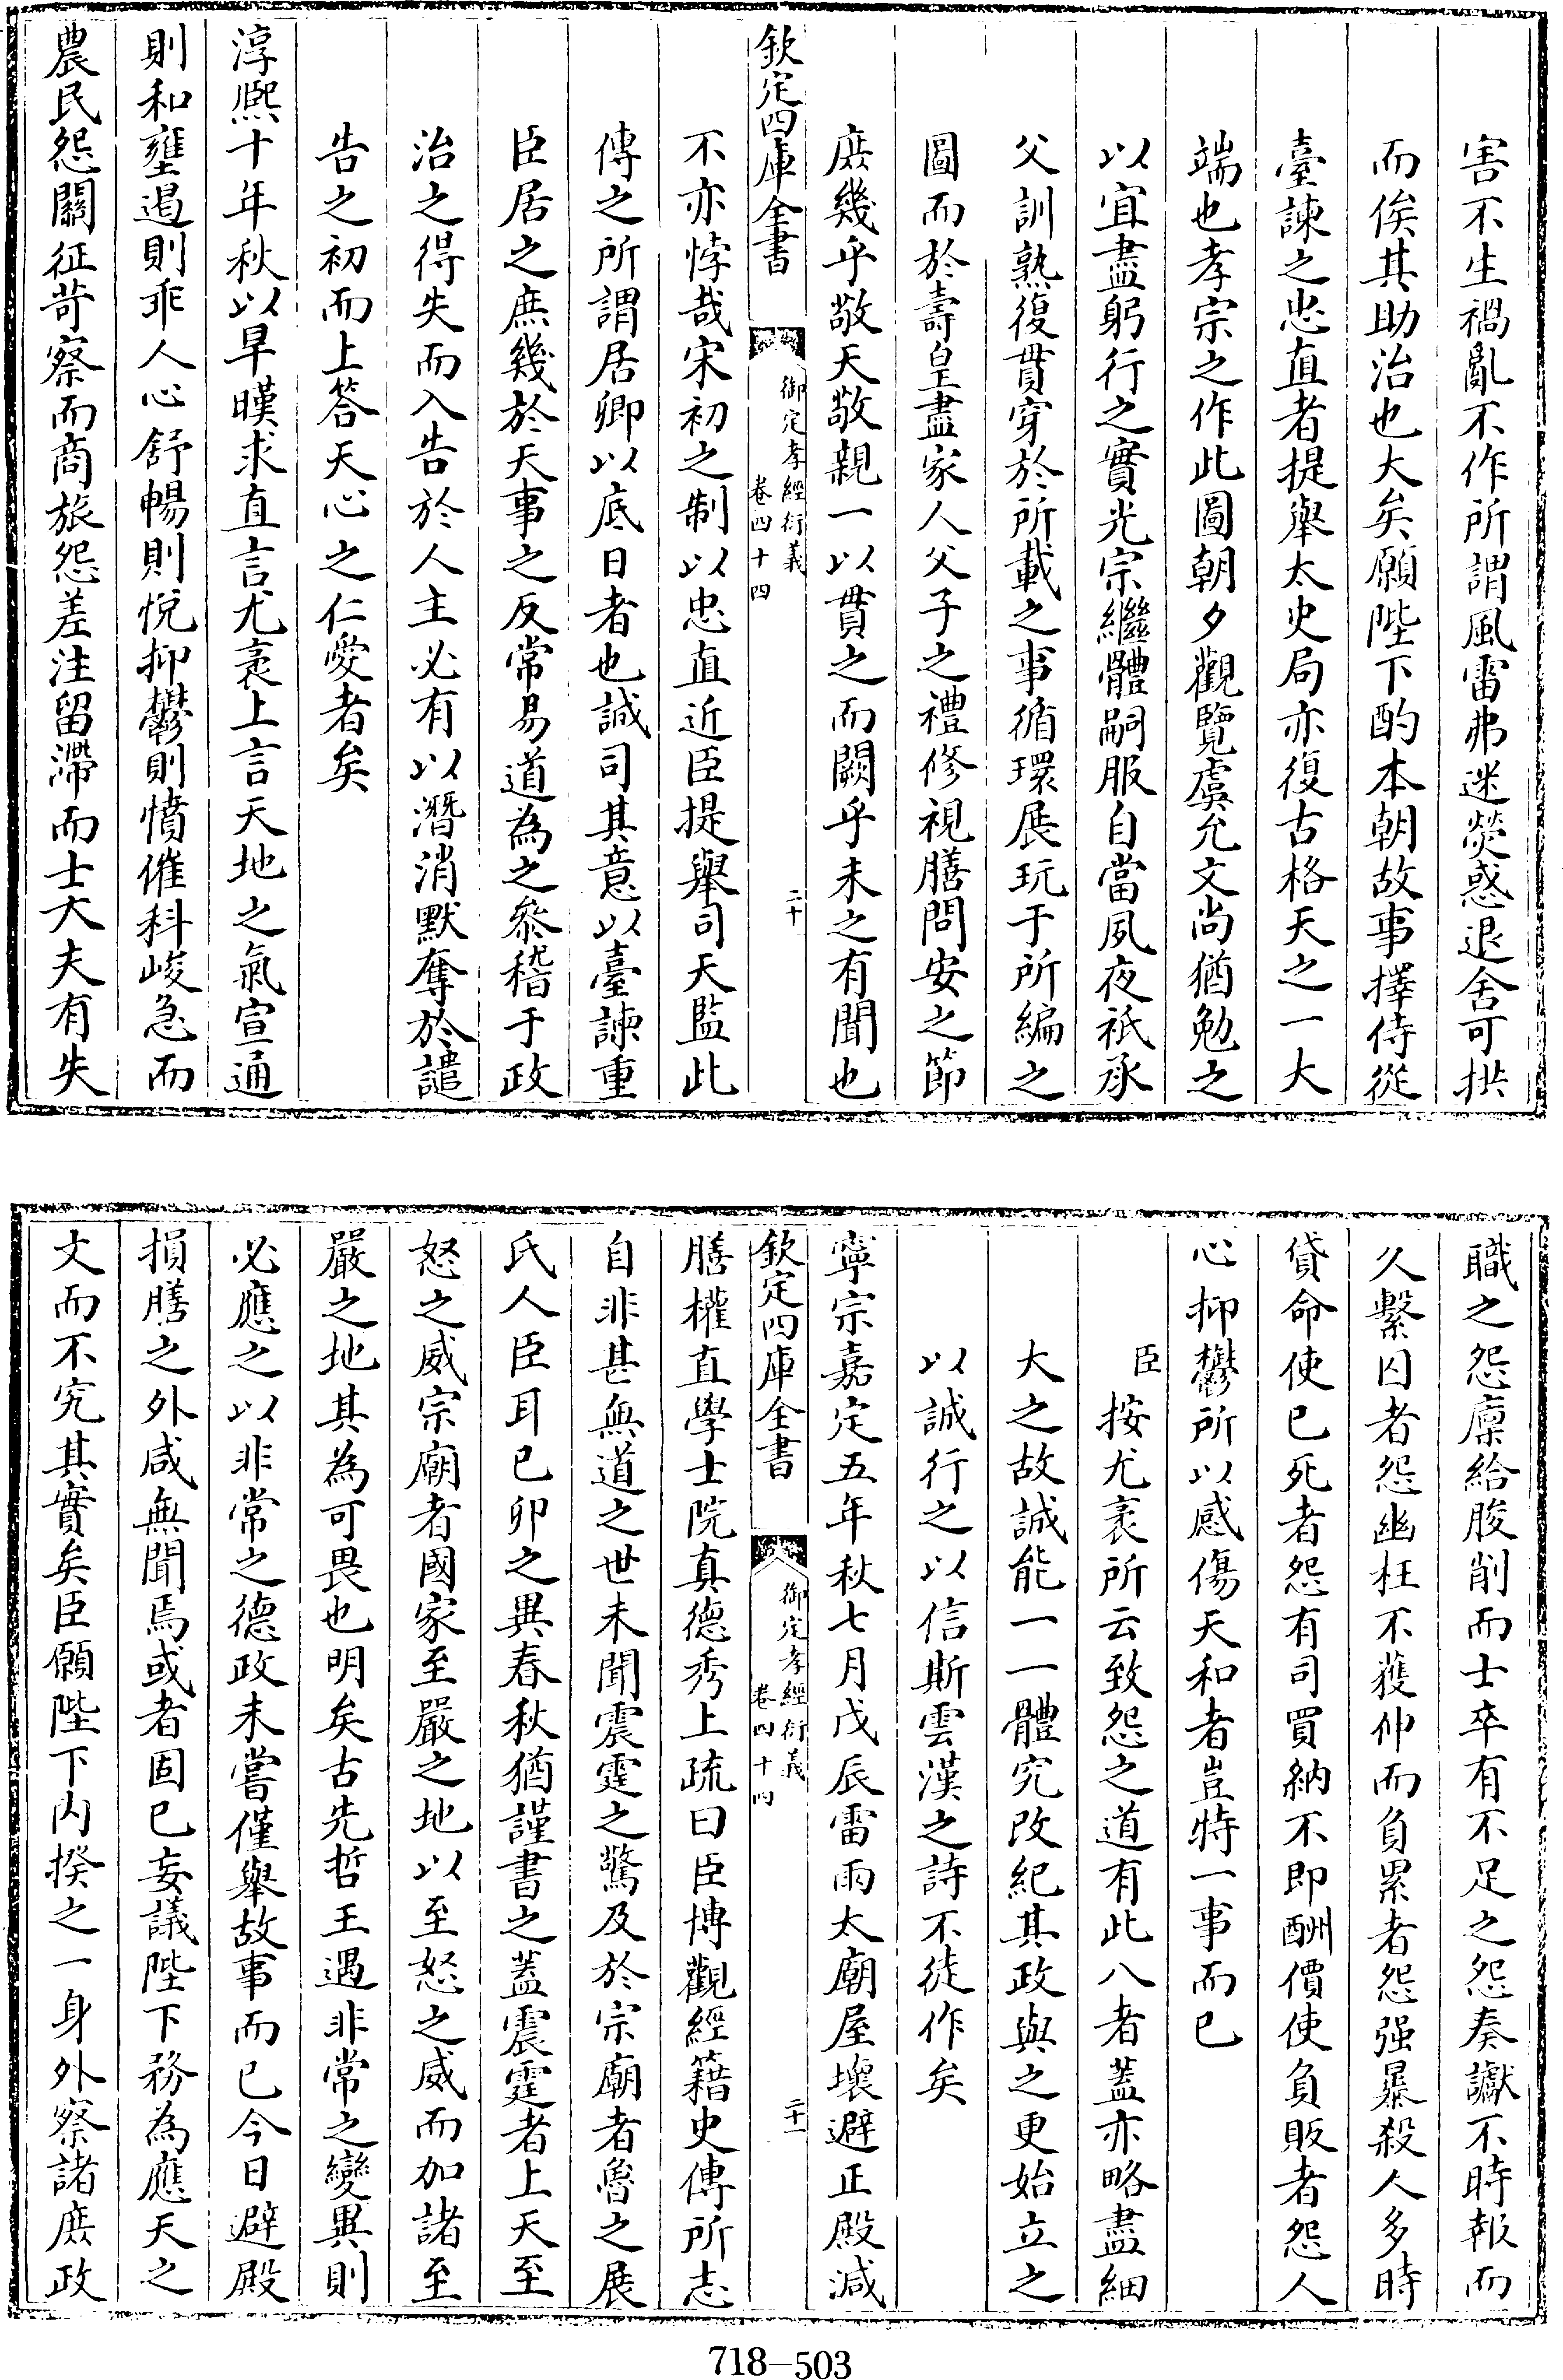 害不生禍亂不作所謂風雷弗迷熒惑退舍可拱
而俟其助治也大矣願陛下酌本朝故事擇侍從
臺諫之忠直者提舉太史局亦復古格天之一大
端也孝宗之作此圖朝夕觀覽虞允文尚猶勉之
以宜盡躬行之實光宗繼體嗣服自當夙夜祗承
父訓熟復貫穿於所載之事循環展玩于所編之
圖而於壽皇盡家人父子之禮修視膳問安之節
庶幾乎敬天敬親一以貫之而闕乎未之有聞也
欽定四庫全書
御定孝經衍義
卷四十四
二十
不亦悖哉宋初之制以忠直近臣提舉司天監此
傳之所謂居卿以底日者也誠司其意以臺諫重
臣居之庶幾於天事之反常易道為之叅稽于政
治之得失而入告於人主必有以潛消默奪於譴
告之初而上答天心之仁愛者矣
淳熈十年秋以旱暵求直言尤袤上言天地之氣宣通
則和壅遏則乖人心舒暢則悅抑鬱則憤催科峻急而
農民怨關征苛察而商旅怨差注留滯而士大夫有失
職之怨廩給朘削而士卒有不足之怨奏讞不時報而
久繫囚者怨幽枉不獲伸而負累者怨强暴殺人多時
貸命使已死者怨有司買納不即酬價使負販者怨人
心抑鬱所以感傷天和者豈特一事而已
臣按尤袤所云致怨之道有此八者蓋亦略盡細
大之故誠能一一體究改紀其政與之更始立之
以誠行之以信斯雲漢之詩不徒作矣
寧宗嘉定五年秋七月戊辰雷雨太廟屋壞避正殿減
欽定四庫全書
御定孝經衍義
卷四十四
二十一
膳權直學士院真德秀上疏曰臣博觀經籍史傳所志
自非甚無道之世未聞震霆之驚及於宗廟者魯之展
氏人臣耳已卯之異春秋猶謹書之蓋震霆者上天至
怒之威宗廟者國家至嚴之地以至怒之威而加諸至
嚴之地其為可畏也明矣古先哲王遇非常之變異則
必應之以非常之德政未嘗僅舉故事而已今日避殿
損膳之外咸無聞焉或者固已妄議陛下務為應天之
文而不究其實矣臣願陛下内揆之一身外察諸庶政
718-503